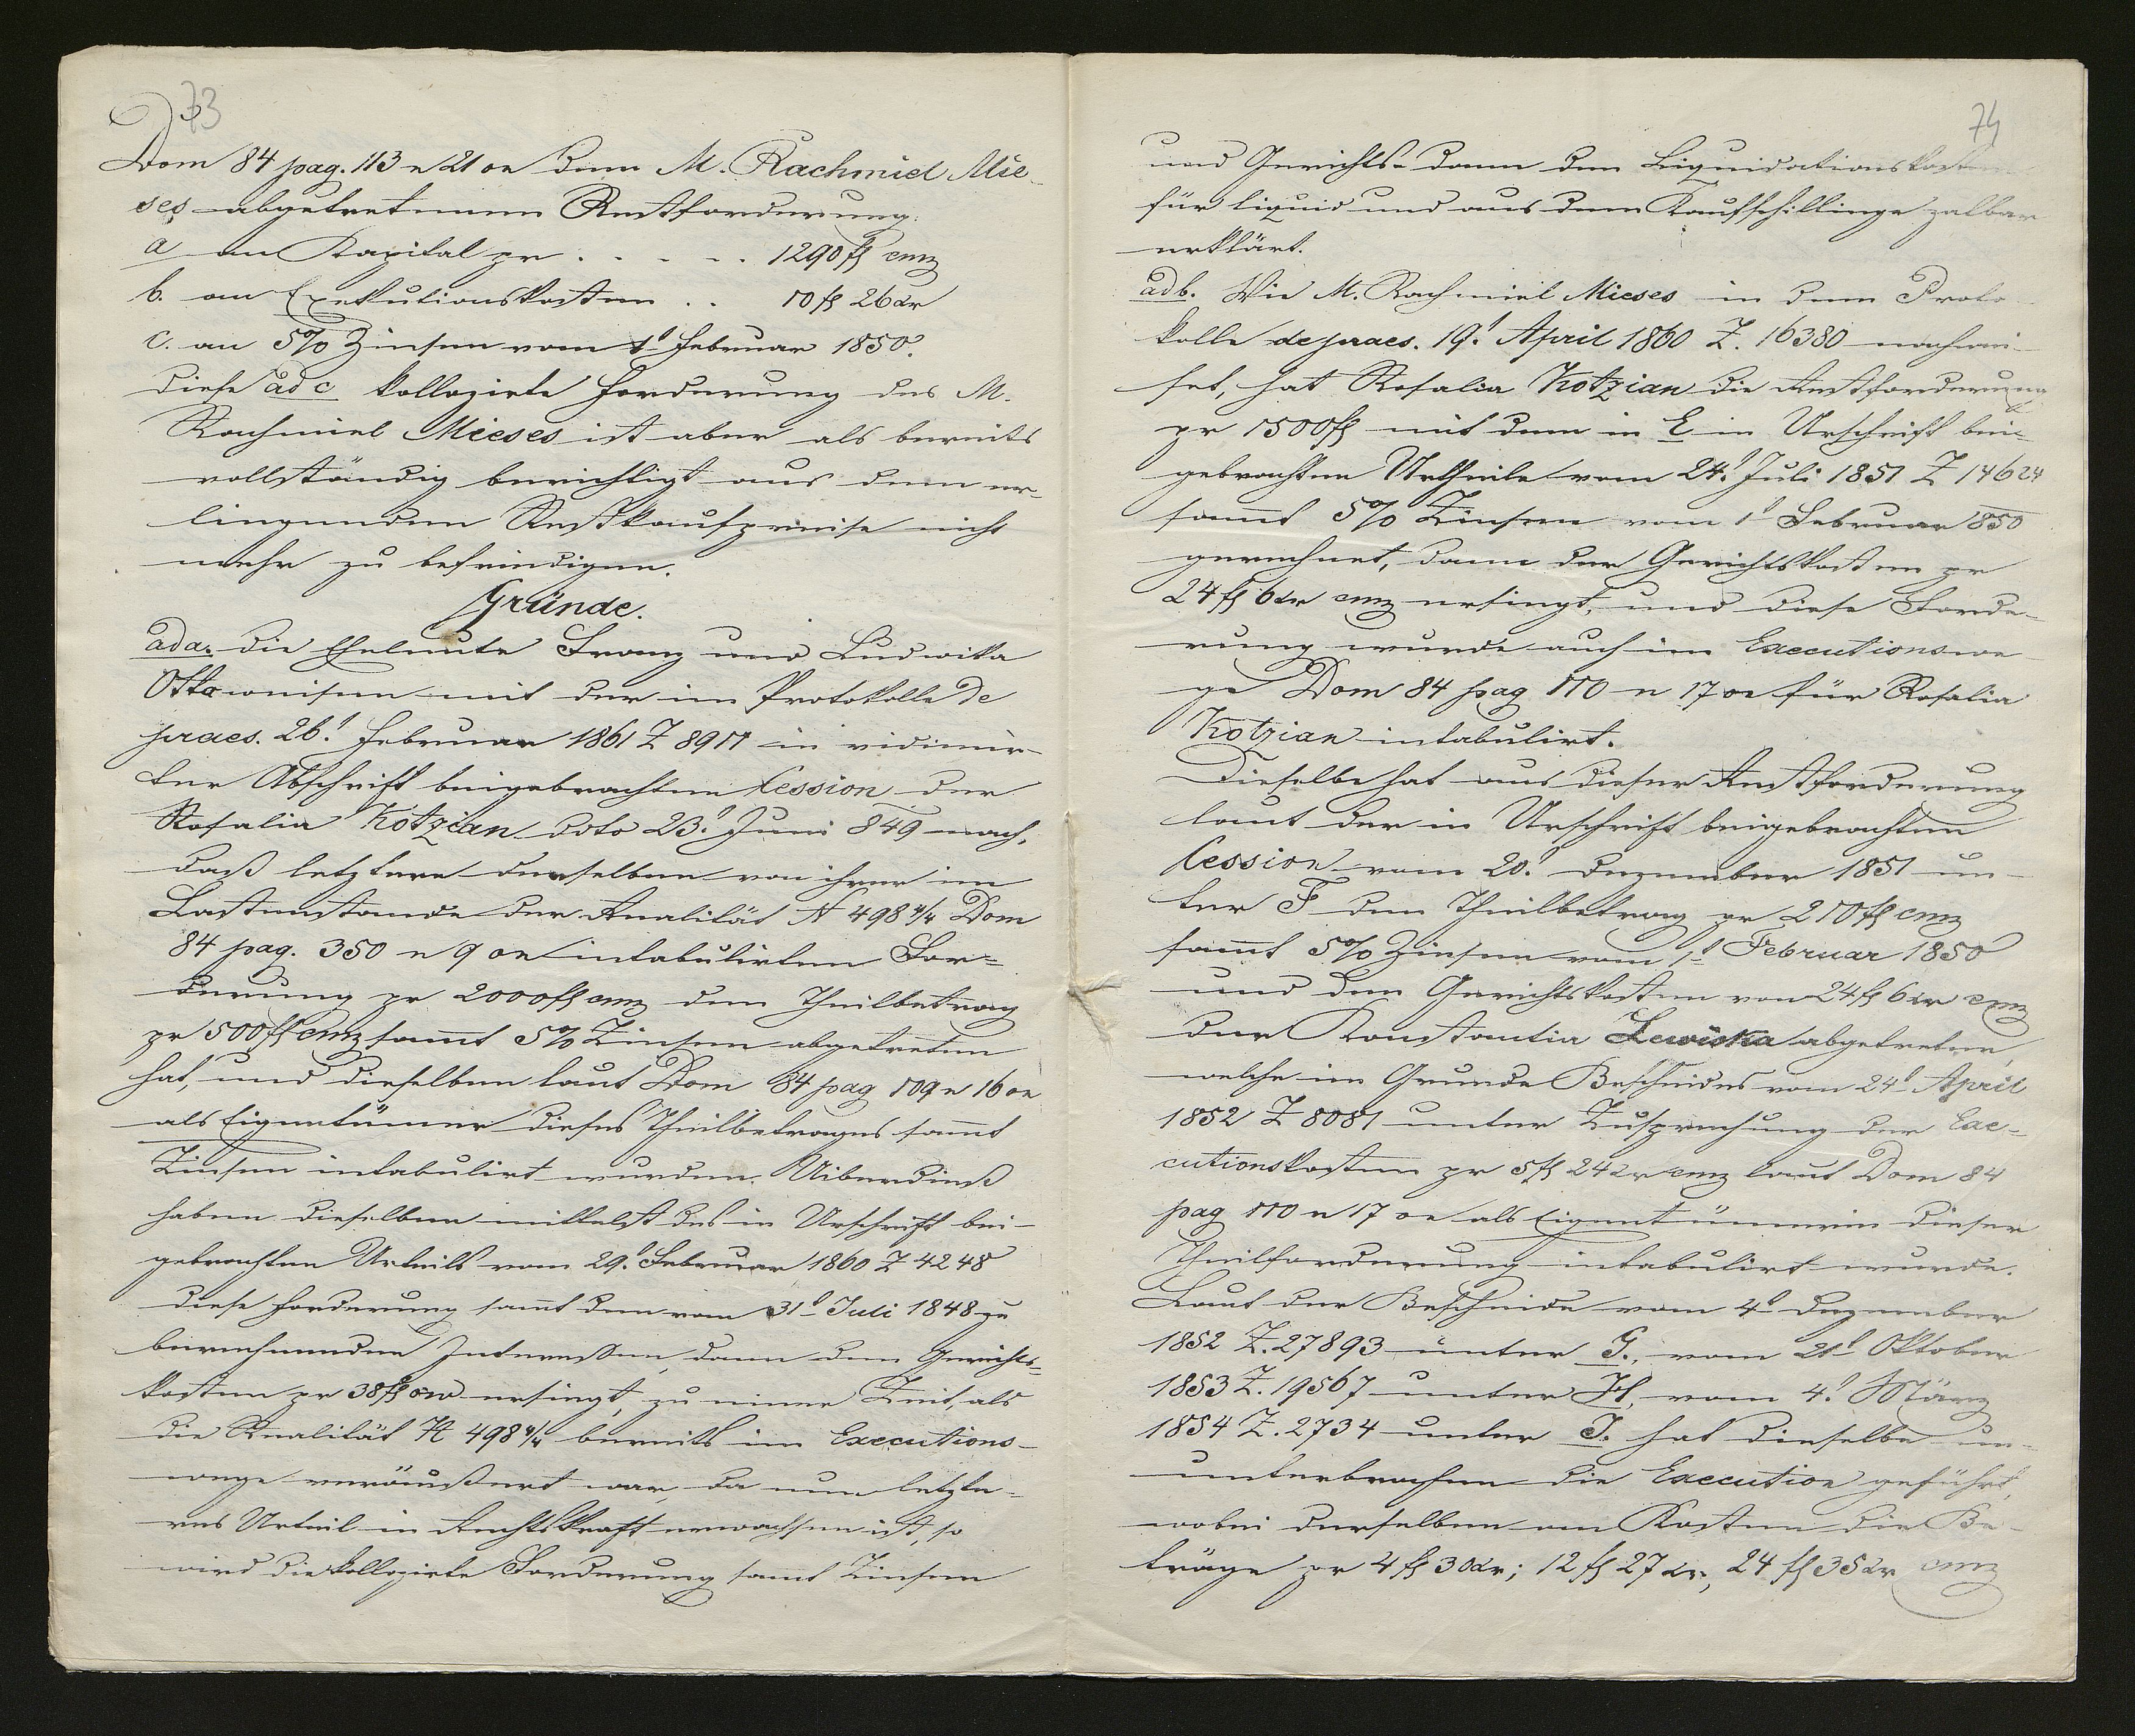 73
Dom 84 pag. 113 n 21 on dem M. Rachmiel Mie-
ses abgetretenen Restforderung:
a an Kapital pr . . . . . 1290 fl cmz
b. an Exekutionskosten . . 10 fl 26 xr
c. an 5% Zinsen vom 1t Februar 1850.
Diese ad c kollozirte Forderung des M.
Rachmiel Mieses ist aber als bereits
vollständig berichtigt aus dem er-
liegenden Restkaufpreise nicht
mehr zu befriedigen.
Gründe.
ad a. Die Eheleute Franz und Ludwika
Otto weisen mit der im Protokolle de
praes. 26t Februar 1861 Z 8917 in vidimir-
ter Abschrift beigebrachten Cession der
Rosalia Kotzian ddto 23t Juni 849 nach,
daß letztere denselben von ihrer im
Lastenstande der Realität N 498 4/4 Dom
84 pag. 350 n 9 on intabulirten For=
derung pr 2000 fl cmz den Theilbetrag
pr 500 fl cmz sammt 5% Zinsen abgetreten
hat, und dieselben laut Dom 84 pag 109 n 16 on
als Eigentümer dieses Theilbetrages sammt
Zinsen intabulirt wurden. Uiberdieß
haben dieselben mittelst des in Urschrift bei-
gebrachten Urteils vom 29t Februar 1860 Z 4248
diese Forderung sammt den vom 31t Juli 1848 zu
berechnenden Interessen, dann den Gerichts=
kosten pr 38 fl öw ersiegt, zu einer Zeit, als
die Realität N 498 4/4 bereits im Executions-
wege veräußert war, da nun letzte-
res Urteil in Rechtskraft erwachsen ist, so
wird die kollozirte Forderung sammt Zinsen
74
und Gerichts- dann den Liquidationskosten
für liquid und aus dem Kaufschillinge zalbar
erklärt.
ad b. Wie M. Rachmiel Mieses in dem Proto-
kolle de praes. 19t April 1860 Z. 16380 nachwei-
set, hat Rosalia Kotzian die Restforderung
pr 1500 fl mit dem in E in Urschrift bei-
gebrachten Urtheile vom 24t Juli 1851 Z 14624
sammt 5% Zinsen vom 1t Februar 850
gerechnet, dann der Gerichtskosten pr
24 fl 6 xr cmz ersiegt, und diese Forde-
rung wurde auch im Executionswe
ge Dom 84 pag 110 n 17 on für Rosalia
Kotzian intabulirt.
Dieselbe hat aus dieser Restforderung
laut der in Urschrift beigebrachten
Cession vom 20t Dezember 1851 un-
ter F den Theilbetrag pr 210 fl cmz
sammt 5% Zinsen vom 1t Februar 1850
und den Gerichtskosten von 24 fl 6 xr cmz
der Konstantia Lewiska abgetreten,
welche im Grunde Bescheides vom 24t April
1852 Z 8081 unter Zusprechung der Exe-
cutionskosten pr 5 fl 24 xr cmz laut Dom 84
pag 110 n 17 on als Eigentümerin dieser
Theilforderung intabulirt wurde.
Laut der Bescheide vom 4t Dezember
1852 Z. 27893 unter G., vom 21t Oktober
1853 Z. 19567 unter H, vom 4t März
1854 Z. 2734 unter J. hat dieselbe un-
unterbrochen die Execution geführt,
wobei derselben an Kosten die Be-
träge pr 4 fl 30 xr; 12 fl 27 xr, 24 fl 35 xr cmz